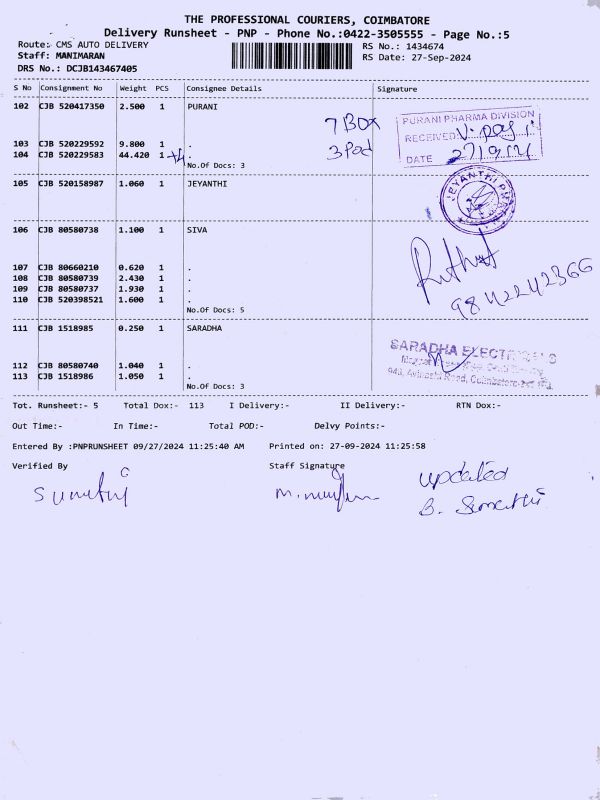 THE PROFESSIONAL COURIERS, COIMBATORE
Delivery Runsheet - PNP - Phone No.:0422-3505555 - Page No.:5
Route: CMS AUTO DELIVERY RS No.: 1434674
Staff: MANIMARAN RS Date: 27-Sep-2024
DRS No.: DCJB143467405
S No Consignment No Weight PCS Consignee Details Signature
102 CJB 520417350 2.500 1 PURANI
7 Box
PURANI PHARMA DIVISION
RECEIVED
103 CJB 520229592 9.800 1 .
3 Pod
104 CJB 520229583 44.420 1 .
DATE 27/9/24
No.Of Docs: 3
105 CJB 520158987 1.060 1 JEYANTHI
JEYANTHI
106 CJB 80580738 1.100 1 SIVA
107 CJB 80660210 0.620 1 .
108 CJB 80580739 2.430 1 .
109 CJB 80580737 1.930 1 .
110 CJB 520398521 1.600 1 .
9842242366
No.Of Docs: 5
111 CJB 1518985 0.250 1 SARADHA
SARADHA ELECT
112 CJB 80580740 1.040 1 .
113 CJB 1518986 1.050 1 .
940, Avinashi Road, Coimbatore
No.Of Docs: 3
Tot. Runsheet:- 5 Total Dox:- 113 I Delivery:- II Delivery:- RTN Dox:-
Out Time:- In Time:- Total POD:- Delvy Points:-
Entered By :PNPRUNSHEET 09/27/2024 11:25:40 AM Printed on: 27-09-2024 11:25:58
Verified By Staff Signature
updated
B. Sumathi